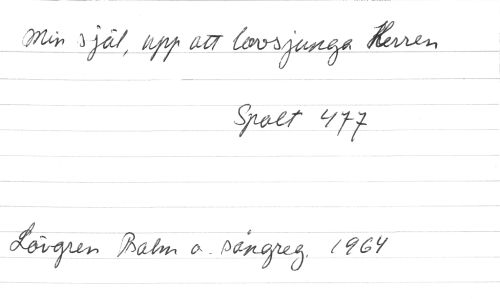 Min själ, upp att lovsjunga Herren
Spalt 477
Lövgren Psalm o. sångreg. 1964